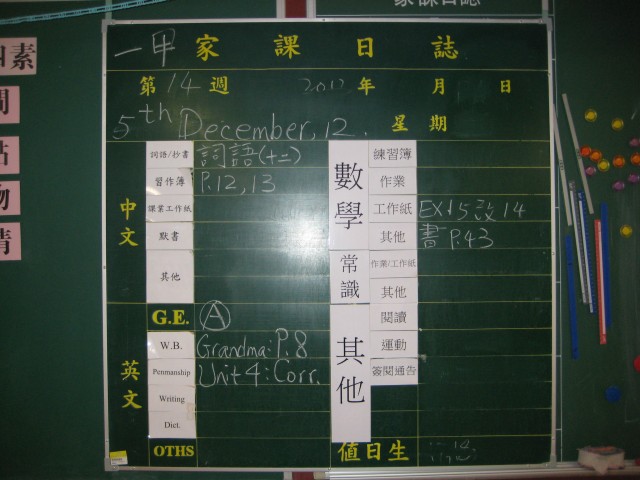 家課日誌
一甲 家課日誌
第14週 2012年 月 日
5th December, 12. 星期
中文
詞語/抄書 詞語(十二)
習作簿 P.12, 13
課業工作紙
默書
其他
G.E. A
英文
W.B. Grandma: P.8
Penmanship Unit 4: Corr.
Writing
Dict.
OTHS
數學
練習簿
作業
工作紙 EX15改14
其他 書P.43
常識
作業/工作紙
其他
其他
閱讀
運動
簽閱通告
值日生 14
因素